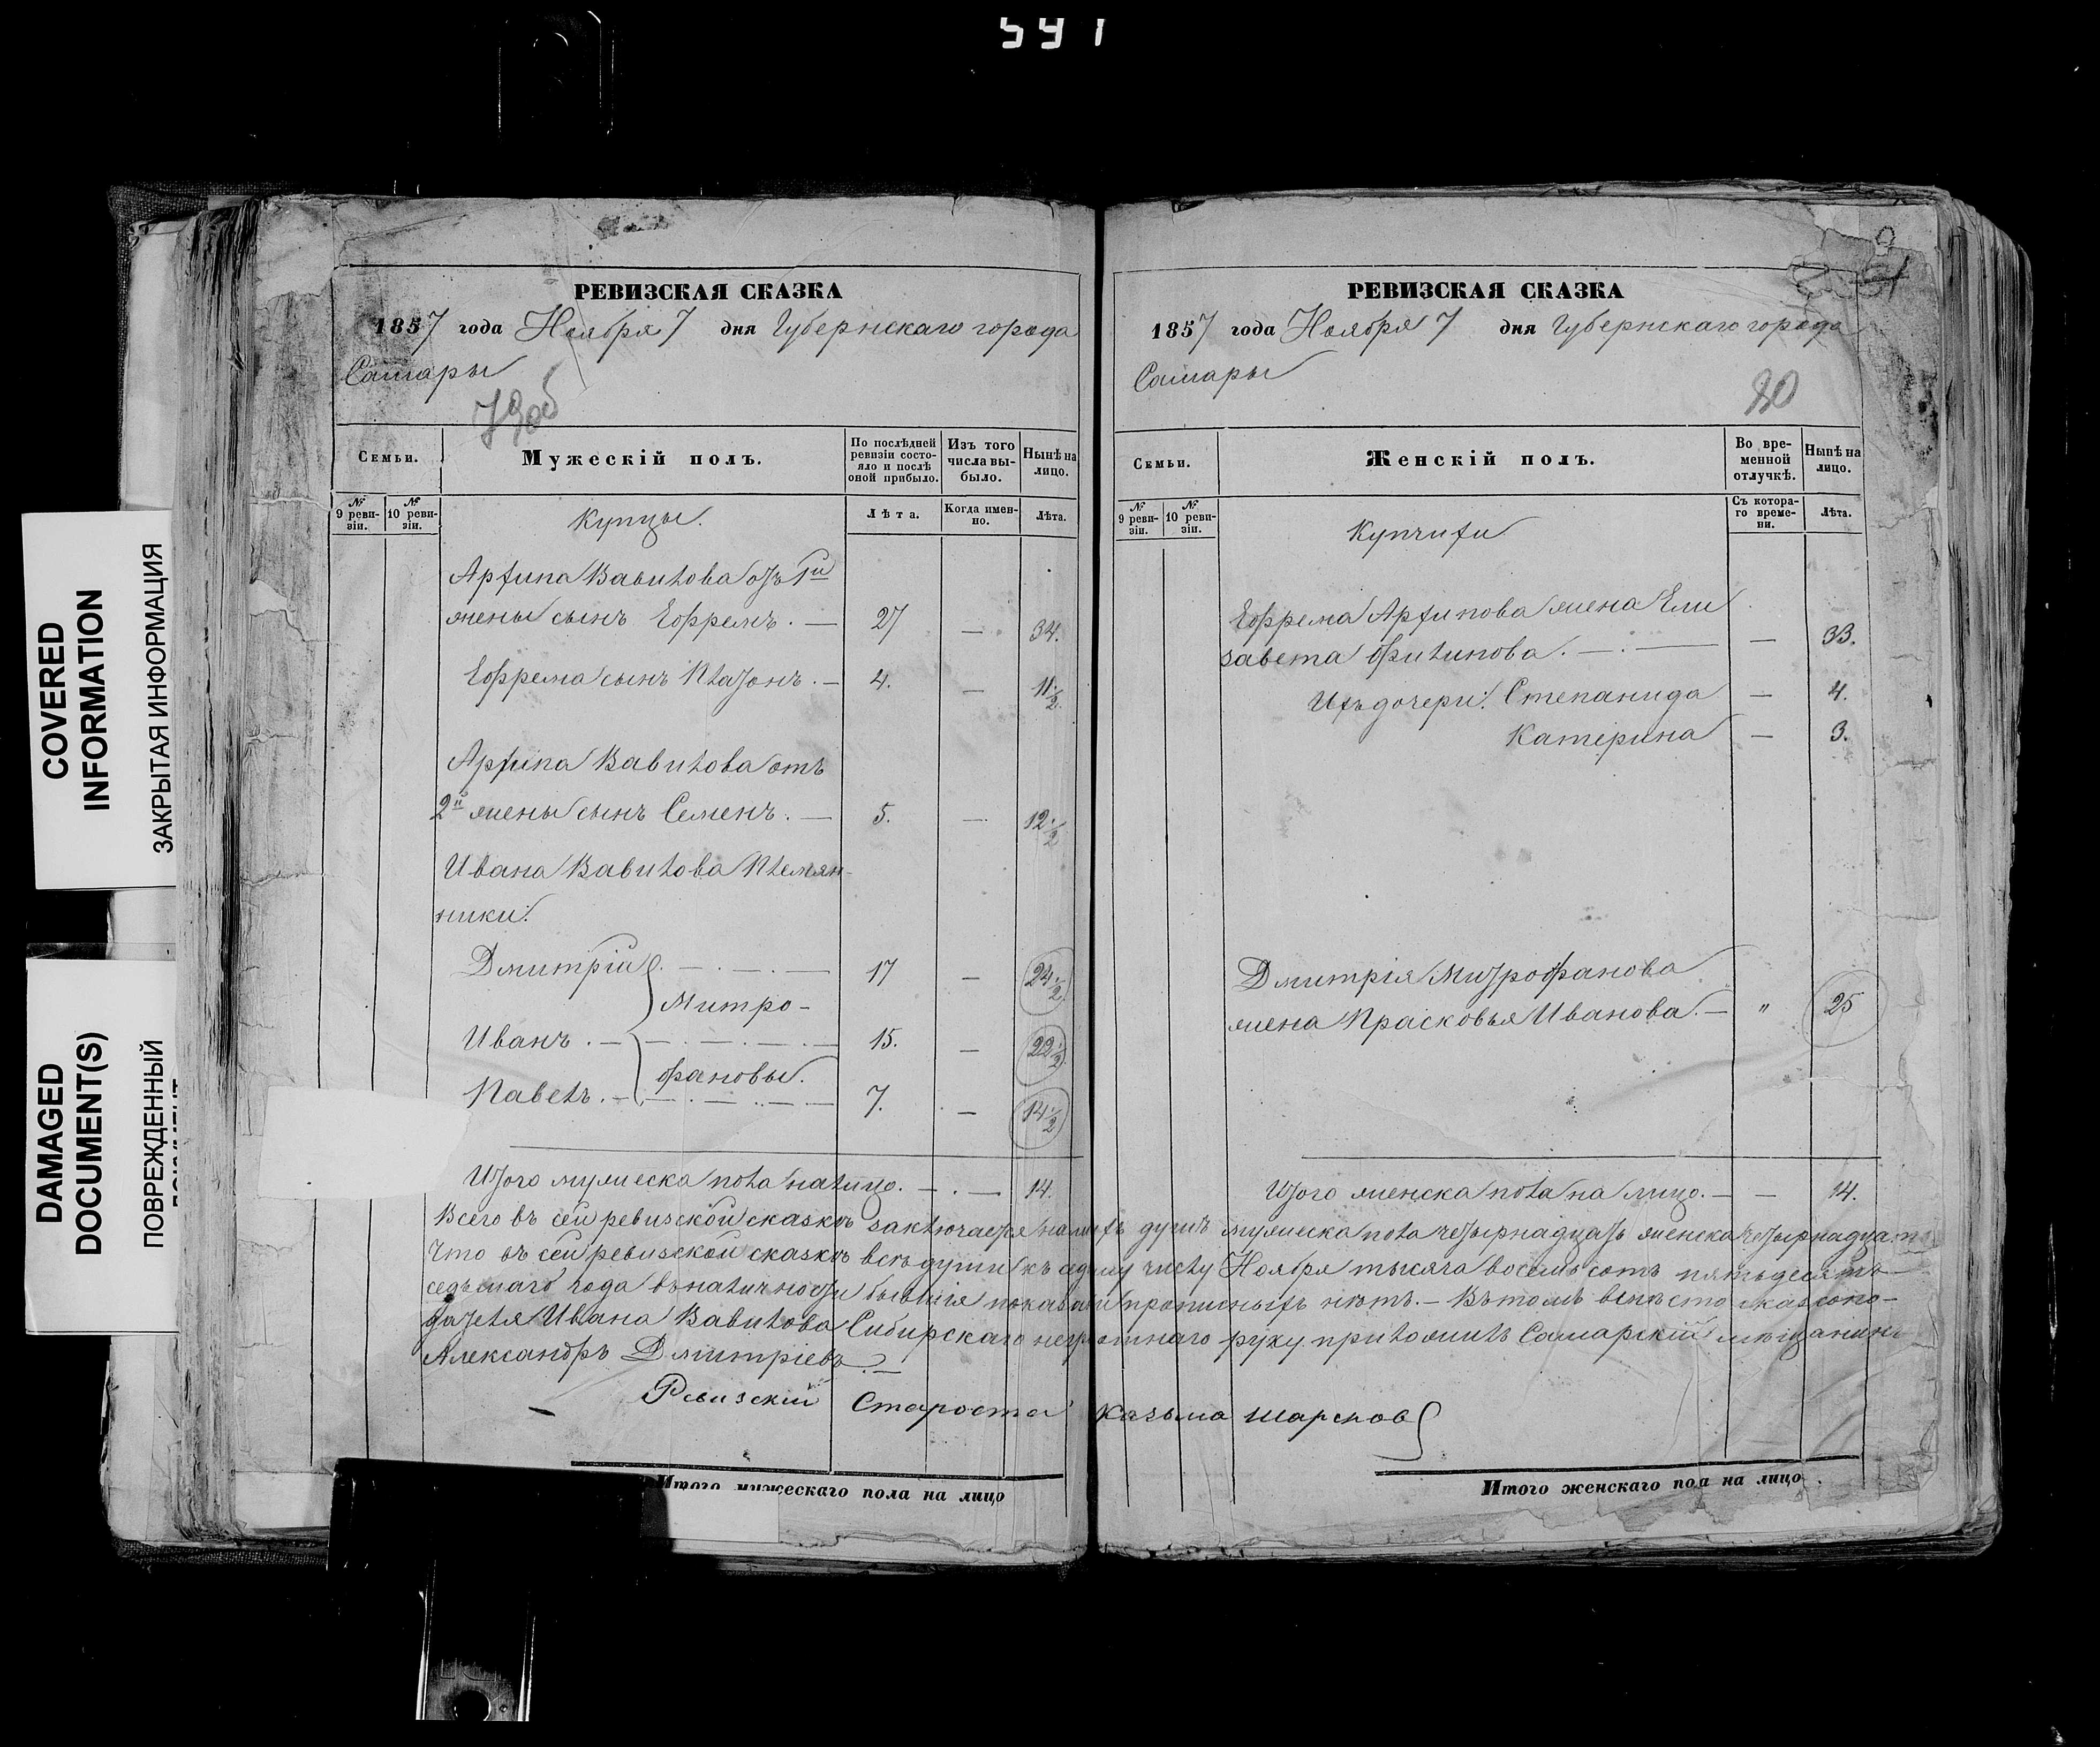 591
COVERED
INFORMATION
ЗАКРЫТАЯ ИНФОРМАЦИЯ
DAMAGED
DOCUMENT(S)
ПОВРЕЖДЕННЫЙ
РЕВИЗСКАЯ СКАЗКА
1857 года Ноября 7 дня Губернскаго города
Самары
79об
Семьи.
Мужескій полъ.
По послѣдней ревизіи состояло и послѣ оной прибыло.
Изъ того числа выбыло.
Нынѣ на лицо.
№ 9 ревизіи.
№ 10 ревизіи.
Лѣта.
Когда именно.
Лѣта.
Купцы.
Архипа Вавилова отъ 1й
жены сынъ Ефремъ. — 27 — 34.
Ефрема сынъ Платонъ. — 4. — 11 1/2
Архипа Вавилова отъ
2й жены сынъ Семенъ. — 5. — 12 1/2
Ивана Вавилова племян-
ники:
Дмитрій — 17 — 24 1/2
Митро-
Иванъ. — 15. — 22 1/2
фановы.
Павелъ. — 7. — 14 1/2
Итого мужеска пола налицо. — 14.
РЕВИЗСКАЯ СКАЗКА
1857 года Ноября 7 дня Губернскаго города
Самары
80
Семьи.
Женскій полъ.
Во временной отлучкѣ.
Нынѣ на лицо.
№ 9 ревизіи.
№ 10 ревизіи.
Съ котораго времени.
Лѣта.
Купчихи
Ефрема Архипова жена Ели
завета Филипова. — — 33.
Ихъ дочери: Степанида — 4.
Катерина — 3.
Дмитрія Митрофанова
жена Прасковья Иванова. — " 25
Итого женска пола на лицо. — — 14.
Всего въ сей ревизской сказкѣ заключается налицѣ душъ мужеска пола четырнадцать женска четырнадцать
Что въ сей ревизской сказкѣ всѣ души къ седьму числу Ноября тысяча восемь сотъ пятьдесятъ
седьмаго года въ наличности бывшія показаны и прописныхъ нѣтъ. — Въ томъ вмѣсто сказкопо-
дателя Ивана Вавилова Сибирскаго неграмотнаго руку приложилъ Самарскій мѣщанинъ
Александръ Дмитріевъ. —
Ревизскій Староста Казьма Шарсков
Итого мужескаго пола на лицо
Итого женскаго пола на лицо.